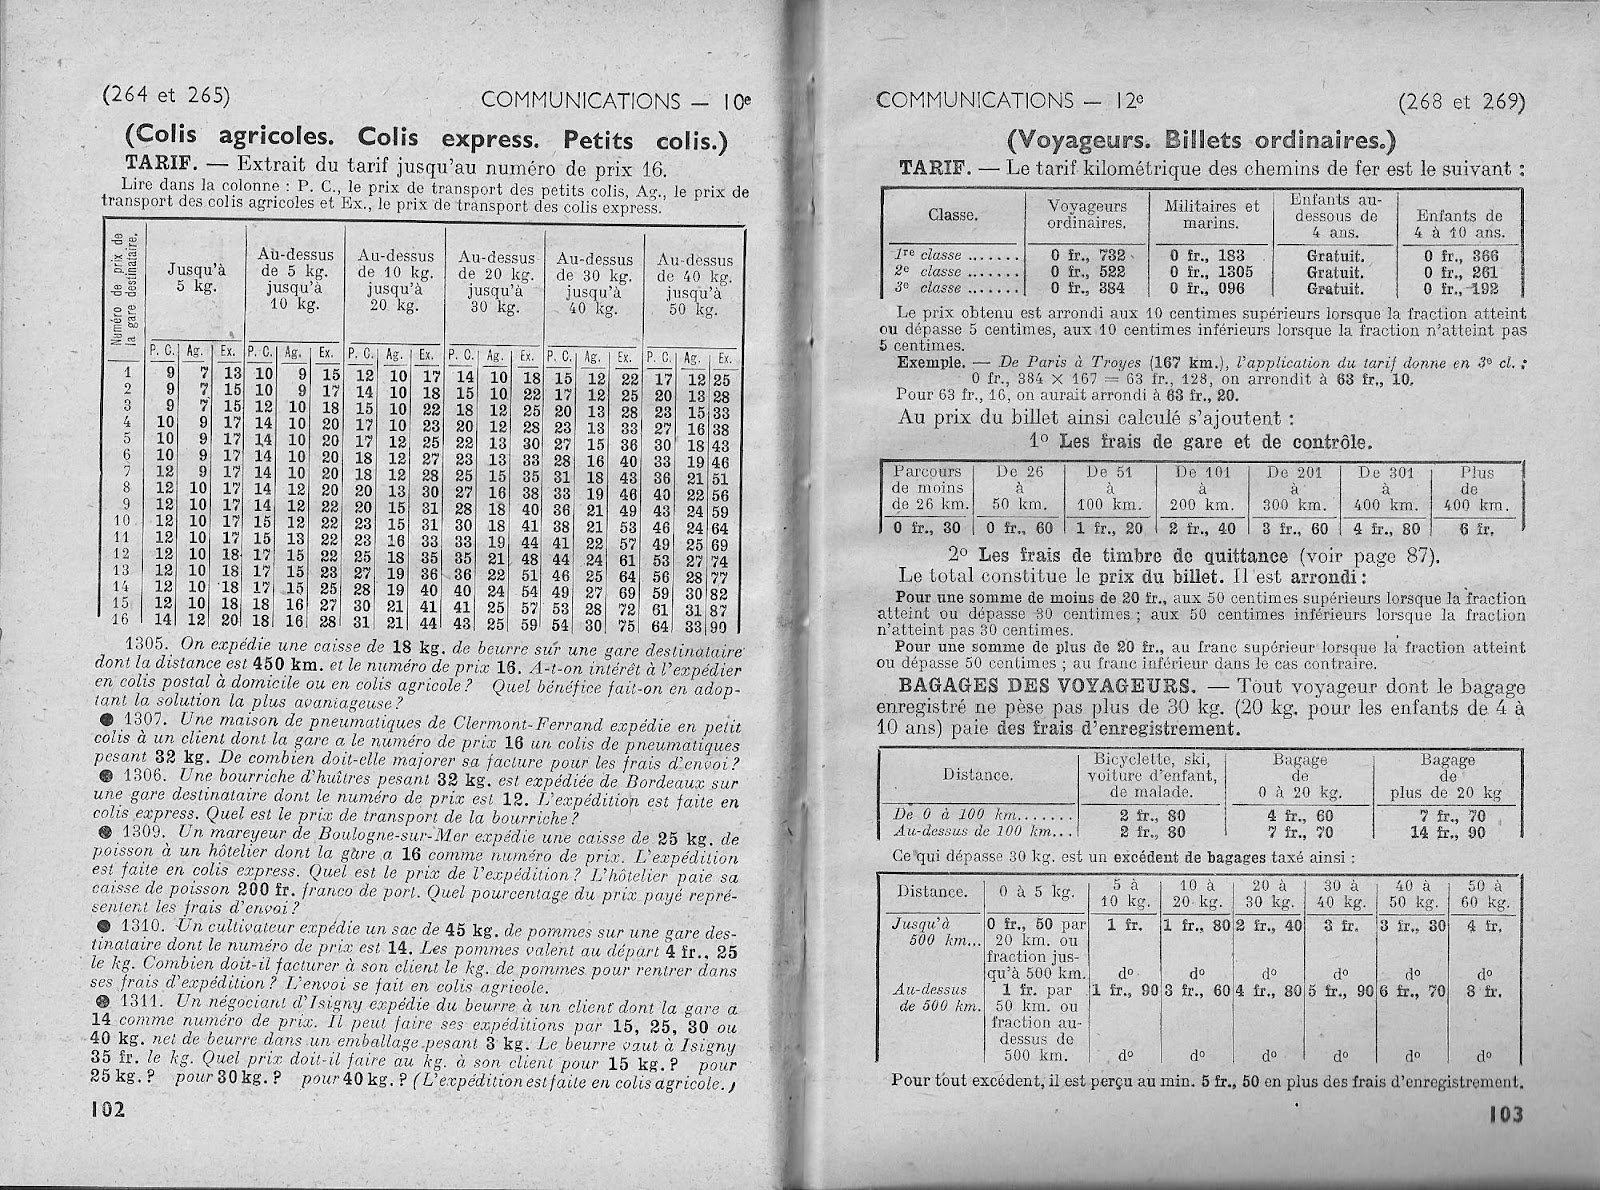 (264 et 265) COMMUNICATIONS — 10e
(Colis agricoles. Colis express. Petits colis.)
TARIF. — Extrait du tarif jusqu'au numéro de prix 16.
Lire dans la colonne : P. C., le prix de transport des petits colis, Ag., le prix de
transport des colis agricoles et Ex., le prix de transport des colis express.
Numéro de prix de
la gare destinataire.
Jusqu'à
5 kg.
Au-dessus
de 5 kg.
jusqu'à
10 kg.
Au-dessus
de 10 kg.
jusqu'à
20 kg.
Au-dessus
de 20 kg.
jusqu'à
30 kg.
Au-dessus
de 30 kg.
jusqu'à
40 kg.
Au-dessus
de 40 kg.
jusqu'à
50 kg.
P. C. Ag. Ex. P. C. Ag. Ex. P. C. Ag. Ex. P. C. Ag. Ex. P. C. Ag. Ex. P. C. Ag. Ex.
1 9 7 13 10 9 15 12 10 17 14 10 18 15 12 22 17 12 25
2 9 7 15 10 9 17 14 10 18 15 10 22 17 12 25 20 13 28
3 9 7 15 12 10 18 15 10 22 18 12 25 20 13 28 23 15 33
4 10 9 17 14 10 20 17 10 23 20 12 28 23 13 33 27 16 38
5 10 9 17 14 10 20 17 12 25 22 13 30 27 15 36 30 18 43
6 10 9 17 14 10 20 18 12 27 23 13 33 28 16 40 33 19 46
7 12 9 17 14 10 20 18 12 28 25 15 35 31 18 43 36 21 51
8 12 10 17 14 12 20 20 13 30 27 16 38 33 19 46 40 22 56
9 12 10 17 14 12 22 20 15 31 28 18 40 36 21 49 43 24 59
10 12 10 17 15 12 22 23 15 31 30 18 41 38 21 53 46 24 64
11 12 10 17 15 13 22 23 16 33 33 19 44 41 22 57 49 25 69
12 12 10 18 17 15 22 25 18 35 35 21 48 44 24 61 53 27 74
13 12 10 18 17 15 23 27 19 36 36 22 51 46 25 64 56 28 77
14 12 10 18 17 15 25 28 19 40 40 24 54 49 27 69 59 30 82
15 12 10 18 18 16 27 30 21 41 41 25 57 53 28 72 61 31 87
16 14 12 20 18 16 28 31 21 44 43 25 59 54 30 75 64 33 90
1305. On expédie une caisse de 18 kg. de beurre sur une gare destinataire
dont la distance est 450 km. et le numéro de prix 16. A-t-on intérêt à l'expédier
en colis postal à domicile ou en colis agricole ? Quel bénéfice fait-on en adop-
tant la solution la plus avantageuse ?
● 1307. Une maison de pneumatiques de Clermont-Ferrand expédie en petit
colis à un client dont la gare a le numéro de prix 16 un colis de pneumatiques
pesant 32 kg. De combien doit-elle majorer sa facture pour les frais d'envoi ?
● 1306. Une bourriche d'huîtres pesant 32 kg. est expédiée de Bordeaux sur
une gare destinataire dont le numéro de prix est 12. L'expédition est faite en
colis express. Quel est le prix de transport de la bourriche ?
● 1309. Un mareyeur de Boulogne-sur-Mer expédie une caisse de 25 kg. de
poisson à un hôtelier dont la gare a 16 comme numéro de prix. L'expédition
est faite en colis express. Quel est le prix de l'expédition ? L'hôtelier paie sa
caisse de poisson 200 fr. franco de port. Quel pourcentage du prix payé repré-
sentent les frais d'envoi ?
● 1310. Un cultivateur expédie un sac de 45 kg. de pommes sur une gare des-
tinataire dont le numéro de prix est 14. Les pommes valent au départ 4 fr., 25
le kg. Combien doit-il facturer à son client le kg. de pommes pour rentrer dans
ses frais d'expédition ? L'envoi se fait en colis agricole.
● 1311. Un négociant d'Isigny expédie du beurre à un client dont la gare a
14 comme numéro de prix. Il peut faire ses expéditions par 15, 25, 30 ou
40 kg. net de beurre dans un emballage pesant 3 kg. Le beurre vaut à Isigny
35 fr. le kg. Quel prix doit-il faire au kg. à son client pour 15 kg. ? pour
25 kg. ? pour 30 kg. ? pour 40 kg. ? (L'expédition est faite en colis agricole.)
102
COMMUNICATIONS — 12e (268 et 269)
(Voyageurs. Billets ordinaires.)
TARIF. — Le tarif kilométrique des chemins de fer est le suivant :
Classe.
Voyageurs
ordinaires.
Militaires et
marins.
Enfants au-
dessous de
4 ans.
Enfants de
4 à 10 ans.
1re classe ....... 0 fr., 732 0 fr., 183 Gratuit. 0 fr., 366
2e classe ....... 0 fr., 522 0 fr., 1305 Gratuit. 0 fr., 261
3e classe ....... 0 fr., 384 0 fr., 096 Gratuit. 0 fr., 192
Le prix obtenu est arrondi aux 10 centimes supérieurs lorsque la fraction atteint
ou dépasse 5 centimes, aux 10 centimes inférieurs lorsque la fraction n'atteint pas
5 centimes.
Exemple. — De Paris à Troyes (167 km.), l'application du tarif donne en 3e cl. :
0 fr., 384 × 167 = 63 fr., 128, on arrondit à 63 fr., 10.
Pour 63 fr., 16, on aurait arrondi à 63 fr., 20.
Au prix du billet ainsi calculé s'ajoutent :
1o Les frais de gare et de contrôle.
Parcours
de moins
de 26 km.
De 26
à
50 km.
De 51
à
100 km.
De 101
à
200 km.
De 201
à
300 km.
De 301
à
400 km.
Plus
de
400 km.
0 fr., 30 0 fr., 60 1 fr., 20 2 fr., 40 3 fr., 60 4 fr., 80 6 fr.
2o Les frais de timbre de quittance (voir page 87).
Le total constitue le prix du billet. Il est arrondi :
Pour une somme de moins de 20 fr., aux 50 centimes supérieurs lorsque la fraction
atteint ou dépasse 30 centimes ; aux 50 centimes inférieurs lorsque la fraction
n'atteint pas 30 centimes.
Pour une somme de plus de 20 fr., au franc supérieur lorsque la fraction atteint
ou dépasse 50 centimes ; au franc inférieur dans le cas contraire.
BAGAGES DES VOYAGEURS. — Tout voyageur dont le bagage
enregistré ne pèse pas plus de 30 kg. (20 kg. pour les enfants de 4 à
10 ans) paie des frais d'enregistrement.
Distance.
Bicyclette, ski,
voiture d'enfant,
de malade.
Bagage
de
0 à 20 kg.
Bagage
de
plus de 20 kg
De 0 à 100 km....... 2 fr., 80 4 fr., 60 7 fr., 70
Au-dessus de 100 km... 2 fr., 80 7 fr., 70 14 fr., 90
Ce qui dépasse 30 kg. est un excédent de bagages taxé ainsi :
Distance.
0 à 5 kg.
5 à
10 kg.
10 à
20 kg.
20 à
30 kg.
30 à
40 kg.
40 à
50 kg.
50 à
60 kg.
Jusqu'à
500 km...
0 fr., 50 par
20 km. ou
fraction jus-
qu'à 500 km.
1 fr. 1 fr., 80 2 fr., 40 3 fr. 3 fr., 30 4 fr.
do do do do do do
Au-dessus
de 500 km.
1 fr. par
50 km. ou
fraction au-
dessus de
500 km.
1 fr., 90 3 fr., 60 4 fr., 80 5 fr., 90 6 fr., 70 8 fr.
do do do do do do
Pour tout excédent, il est perçu au min. 5 fr., 50 en plus des frais d'enregistrement.
103